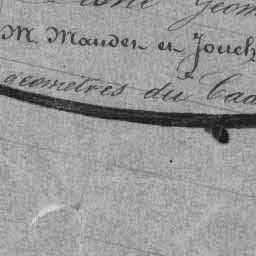 Géom
M. Mauden en Jouch
géomètres du Cad